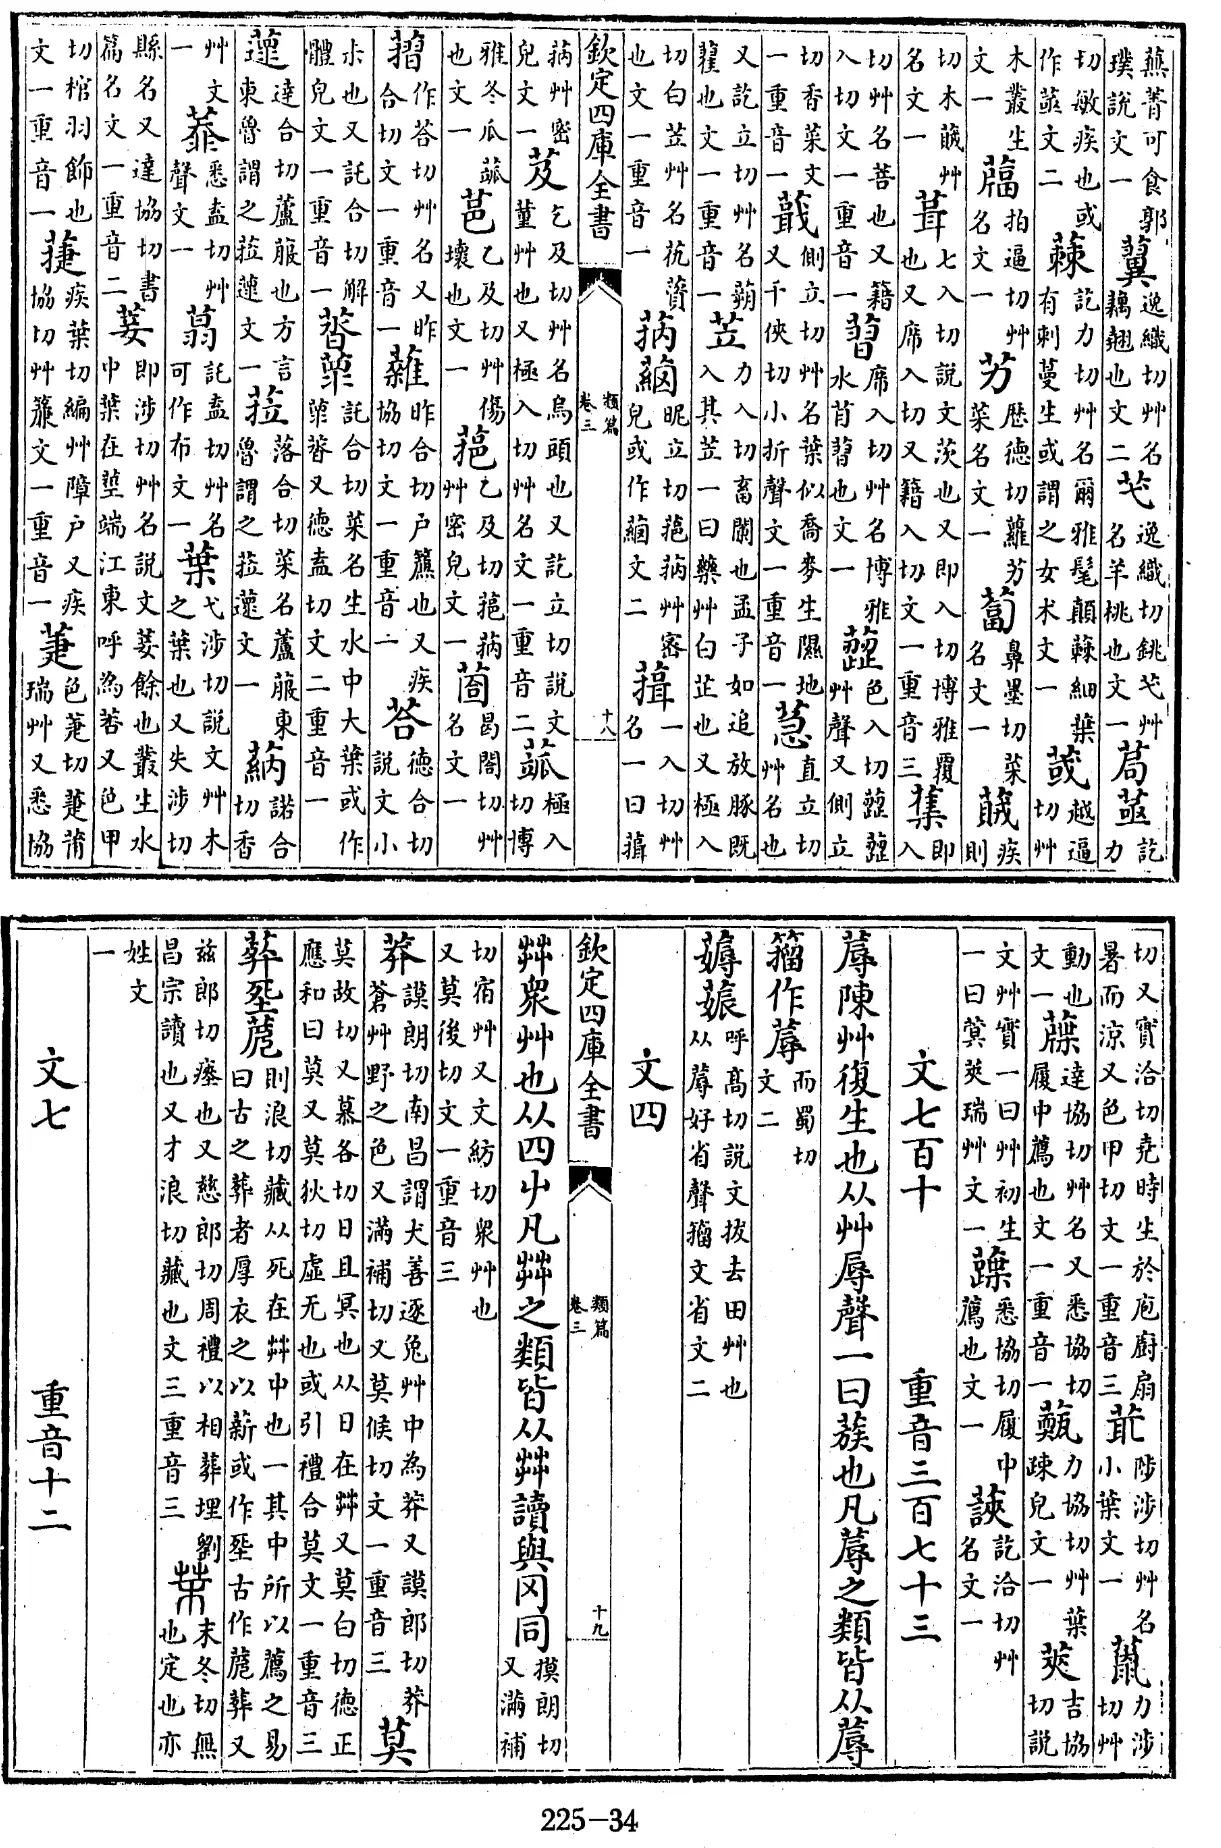 蕪菁可食郭璞說文一 逸織切艸名藕翹也文二 芅 逸織切銚芅艸名羊桃也文一 茍 訖力
切敏疾也或作文二 蕀 訖力切艸名爾雅髦顛蕀細葉有刺蔓生或謂之女木文一 越逼切艸
木叢生文一 拍逼切艸名文一 艻 歷德切蘿艻菜名文一 蔔 鼻墨切菜名文一 疾則
切木艸名文一 葺 七入切說文茨也又即入切博雅覆也又席入切又籍入切文一重音三 即入
切艸名菩也又籍入切文一重音一 席入切艸名博雅水苜也文一 色入切艸聲又側立
切香菜文一重音一 蕺 側立切艸名葉似喬麥生隰地又千俠切小折聲文一重音一 直立切艸名也
又訖立切艸名蒴藋也文一重音一 苙 力入切畜闌也孟子如追放豚既入其苙一曰藥艸白芷也又極入
切白苙艸名也文一重音一 昵立切艸密皃或作文二 葺 一入切艸名一曰葺
欽定四庫全書 類篇 卷三 十八
艸密皃文一 芨 乞及切艸名烏頭也又訖立切說文菫艸也又極入切艸名文一重音二 苽 極入切博
雅冬瓜苽也文一 乙及切艸傷壞也文一 乙及切艸密皃文一 曷閤切艸名文一
作荅切艸名又昨合切文一重音一 昨合切戶簾也又疾協切文一重音一 荅 德合切說文小
尗也又託合切解體皃文一重音一 託合切菜名生水中大葉或作又德盍切文二重音一
蓮 達合切蘆菔也方言東魯謂之菈文一 菈 落合切菜名蘆菔東魯謂之菈文一 蒳 諾合切香
艸文一 悉盍切艸聲文一 託盍切艸名可作布文一 葉 弋涉切說文艸木之葉也又失涉切
縣名又達協切書篇名文一重音二 菨 即涉切艸名說文菨餘也叢生水中葉在莖端江東呼為菨又色甲
切棺羽飾也文一重音一 疾葉切編艸障戶又疾協切艸簾文一重音一 萐 色萐切萐莆瑞艸又悉協
切又實洽切堯時生於庖廚扇暑而涼又色甲切文一重音三 陟涉切艸名小葉文一 力涉切艸
動也文一 達協切艸名又悉協切履中薦也文一重音一 力協切艸葉疎皃文一 莢 吉協切說
文艸實一曰艸初生一曰蓂莢瑞艸文一 悉協切履中薦也文一 訖洽切艸名文一
文七百十 重音三百七十三
蓐陳艸復生也从艸辱聲一曰蔟也凡蓐之類皆从蓐
籀作 而蜀切文二
薅 呼高切說文拔去田艸也从蓐好省聲籀文省文二
文四
欽定四庫全書 類篇 卷三 十九
茻眾艸也从四屮凡茻之類皆从茻讀與冈同 摸朗切又滿補
切宿艸又文紡切眾艸也又莫後切文一重音三
莽 謨朗切南昌謂犬善逐兔艸中為莽又謨郎切莽蒼艸野之色又滿補切又莫候切文一重音三 莫
莫故切又慕各切日且冥也从日在茻又莫白切德正應和曰莫又莫狄切虛无也或引禮合莫文一重音三
葬 則浪切藏从死在茻中也一其中所以薦之易曰古之葬者厚衣之以薪或作古作葬又
兹郎切瘞也又慈郎切周禮以相葬埋劉昌宗讀也又才浪切藏也文三重音三 末冬切無也定也亦
姓文一
文七 重音十二
225-34